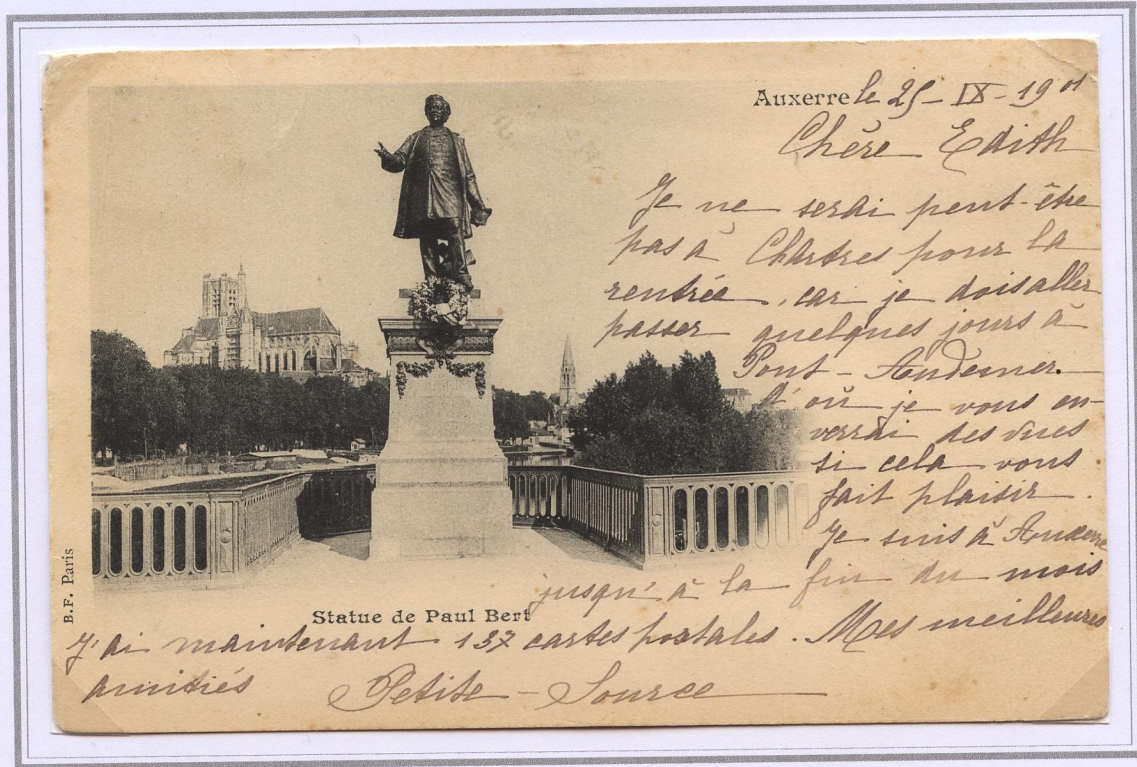 Auxerre le 25-IX-1901
Chère Edith
Je ne serai peut-être
pas à Chartres pour la
rentrée, car je dois aller
passer quelques jours à
Pont-Audemer.
d'où je vous en-
verrai des vues
si cela vous
fait plaisir.
Je suis à Auxerre
jusqu'à la fin du mois
Statue de Paul Bert
J'ai maintenant 137 cartes postales. Mes meilleures
amitiés Petite-Source
B.F. Paris